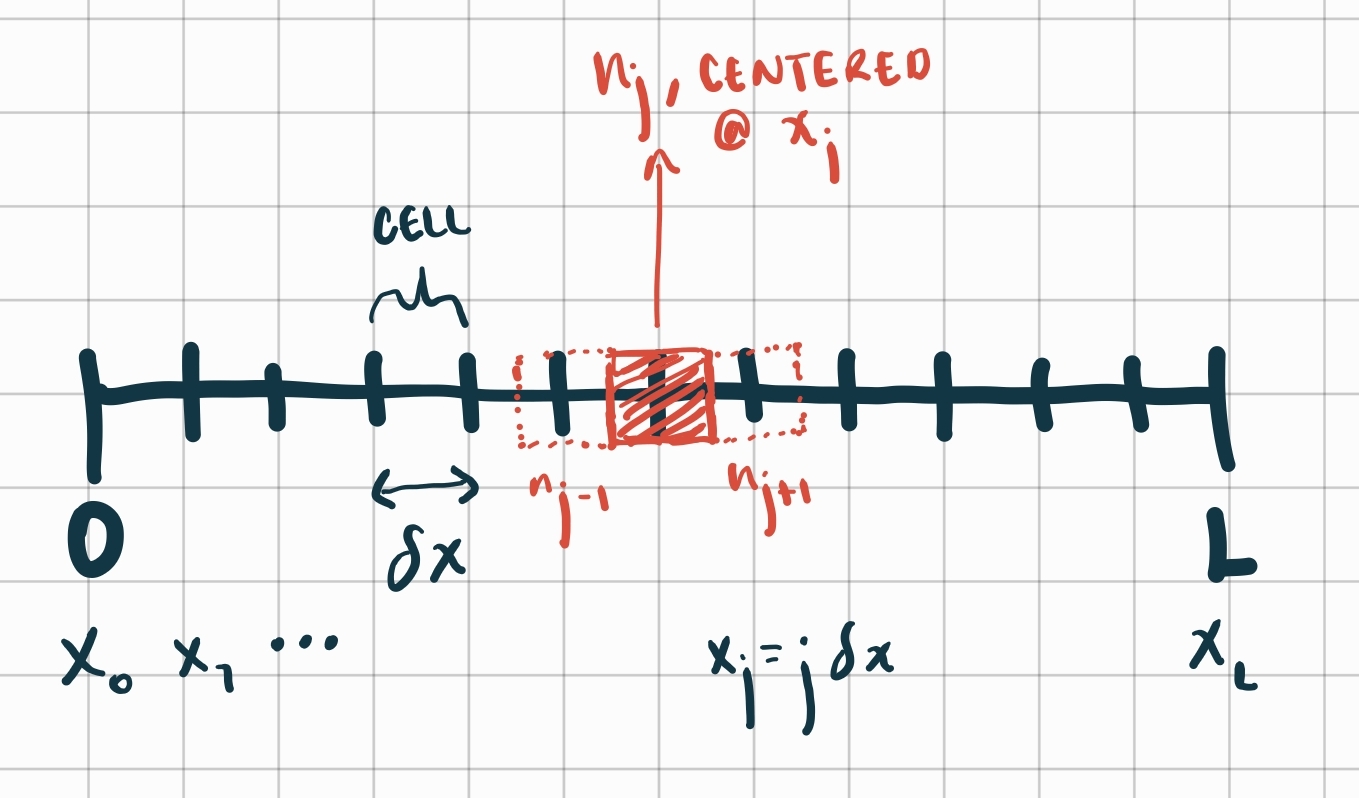 nj, CENTERED
@ xj
CELL
nj-1
nj+1
δx
0
L
x0 x1 ...
xj = jδx
xL